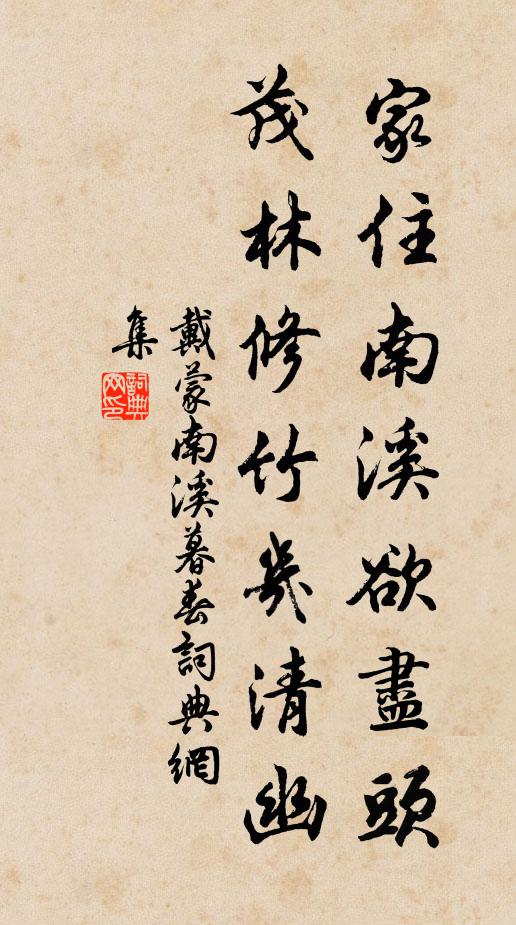 家住南溪欲盡頭
茂林修竹幾清幽
戴蒙南溪暮春詞典網
集
詞典
网印